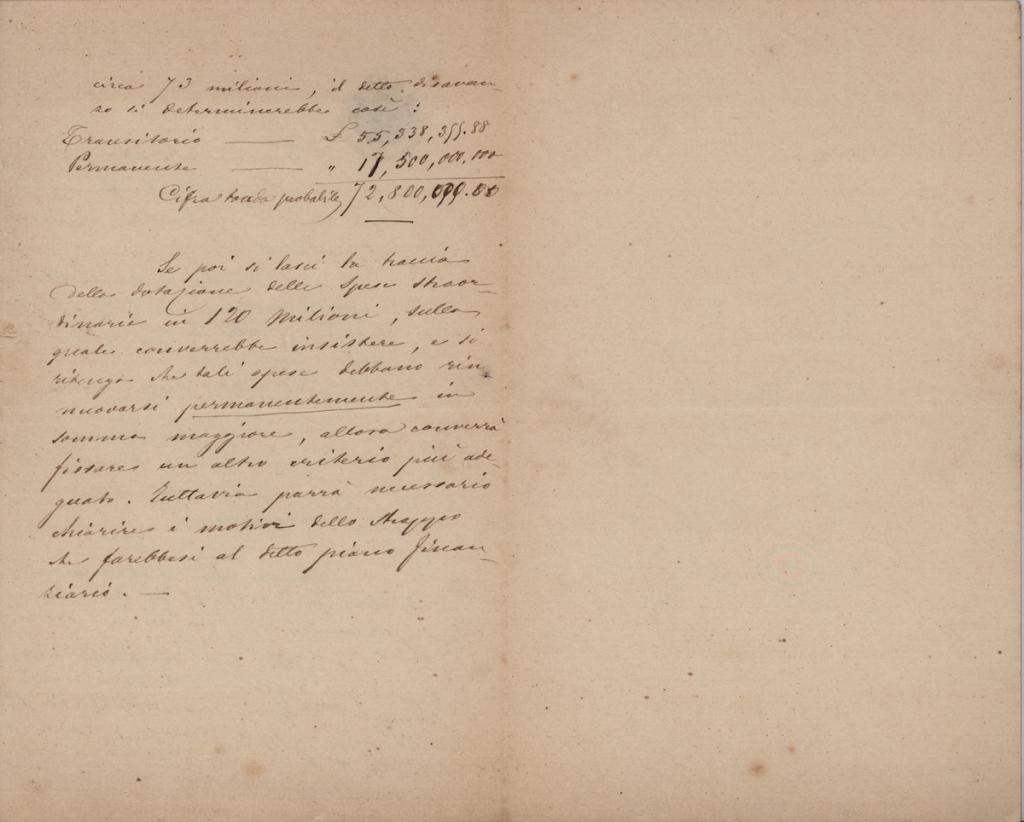 circa 73 milioni, il detto disavan-
zo si determinerebbe così:
Transitorio —— £ 55,338,355.88
Permanente —— " 17,500,000.000
Cifra tonda probabile 72,800,000.00
Se poi si lasci la traccia
della dotazione delle spese straor-
dinarie in 120 milioni, sulla
quale converrebbe insistere, e si
ritenga che tali spese debbano rin
nuovarsi permanentemente in
somma maggiore, allora converrà
fissare un altro criterio più ade-
guato. Tuttavia parrà necessario
chiarire i motivi dello strappo
che farebbesi al detto piano finan-
ziario. —